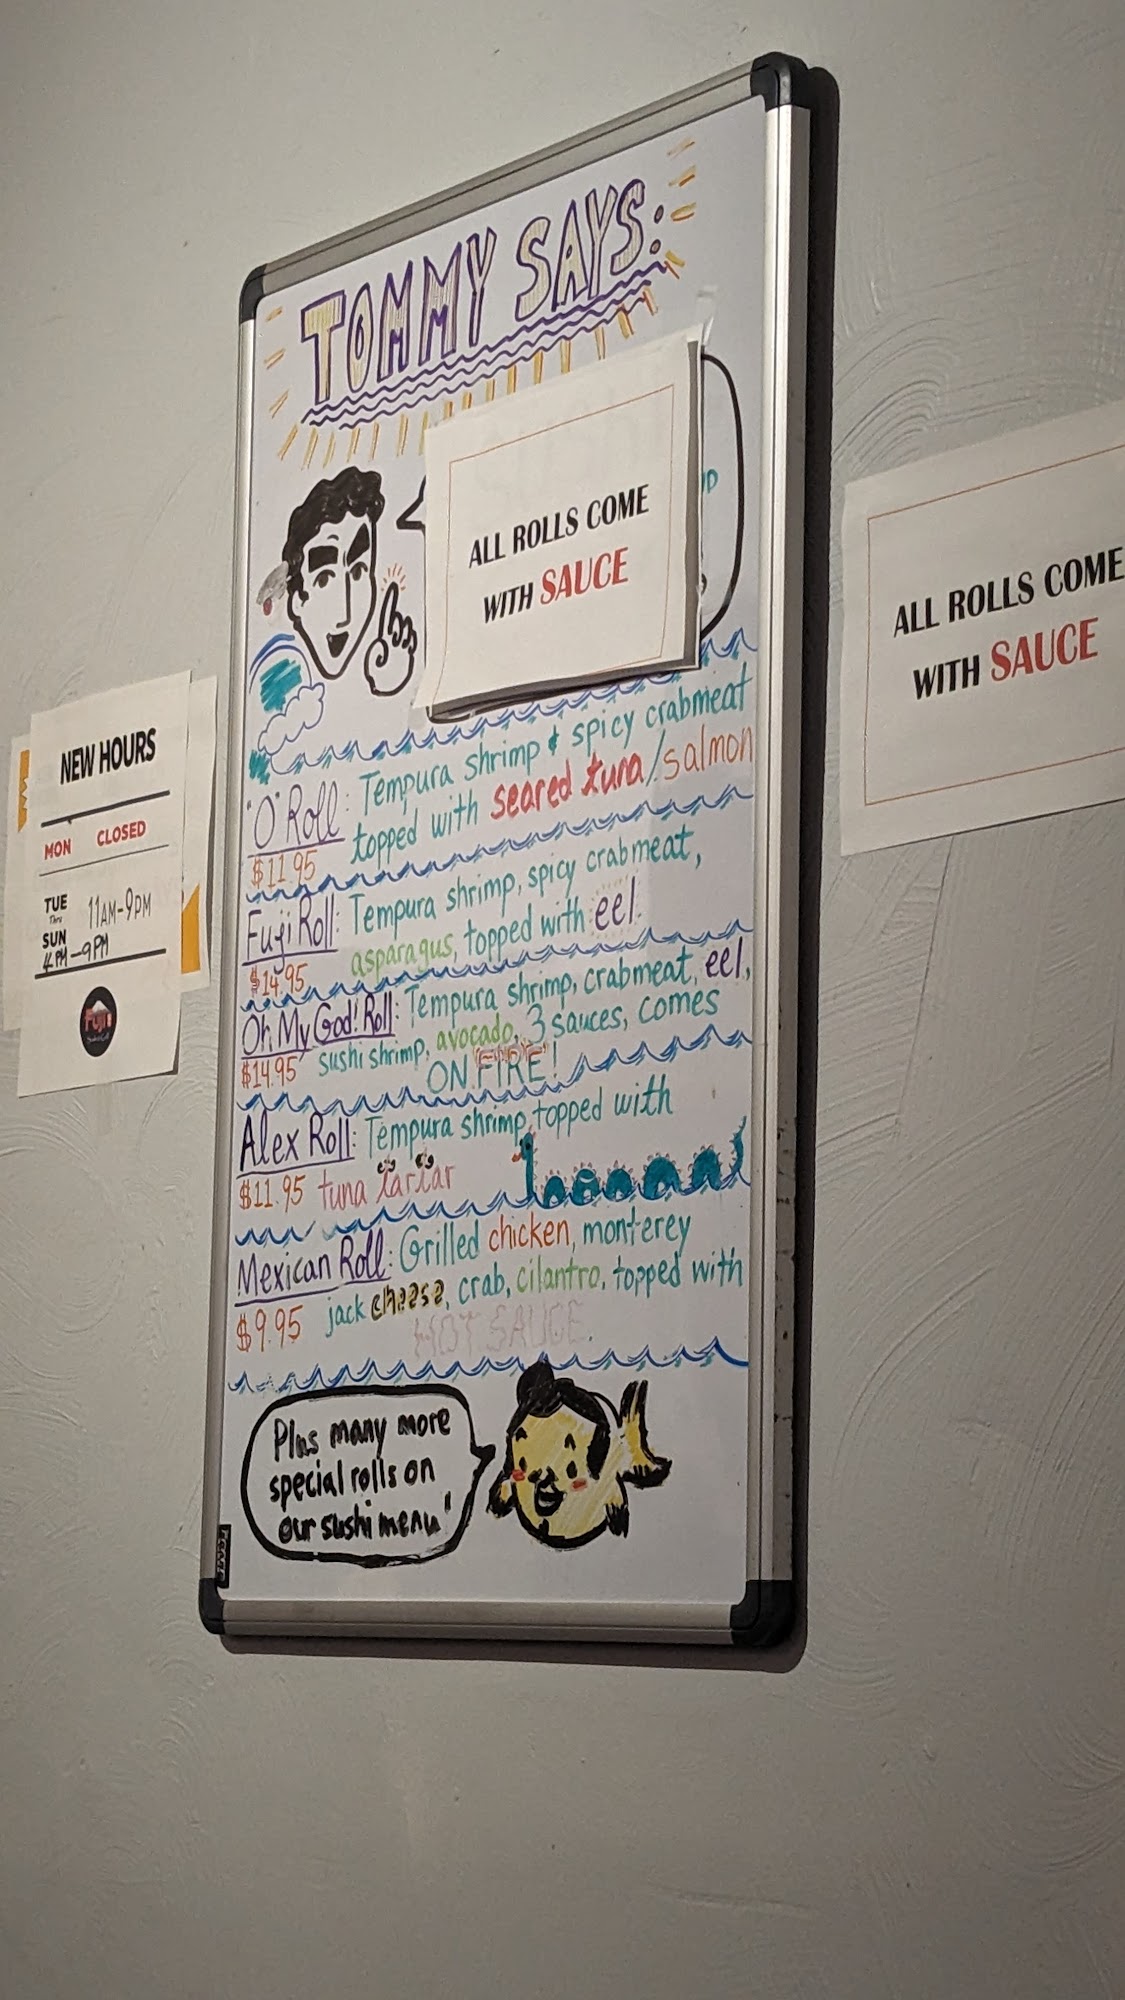 TOMMY SAYS:
ALL ROLLS COME
WITH SAUCE
"O" Roll: Tempura shrimp & spicy crabmeat
$11.95 topped with seared tuna/salmon
Fuji Roll: Tempura shrimp, spicy crabmeat,
$14.95 asparagus, topped with eel.
Oh My God! Roll: Tempura shrimp, crabmeat, eel,
$14.95 sushi shrimp, avocado, 3 sauces, comes
ON FIRE!
Alex Roll: Tempura shrimp topped with
$11.95 tuna tartar
Mexican Roll: Grilled chicken, monterey
$9.95 jack cheese, crab, cilantro, topped with
HOT SAUCE.
Plus many more
special rolls on
our sushi menu!
NEW HOURS
MON CLOSED
TUE
Thru 11AM-9PM
SUN
4PM-9PM
FUJI
ALL ROLLS COME
WITH SAUCE